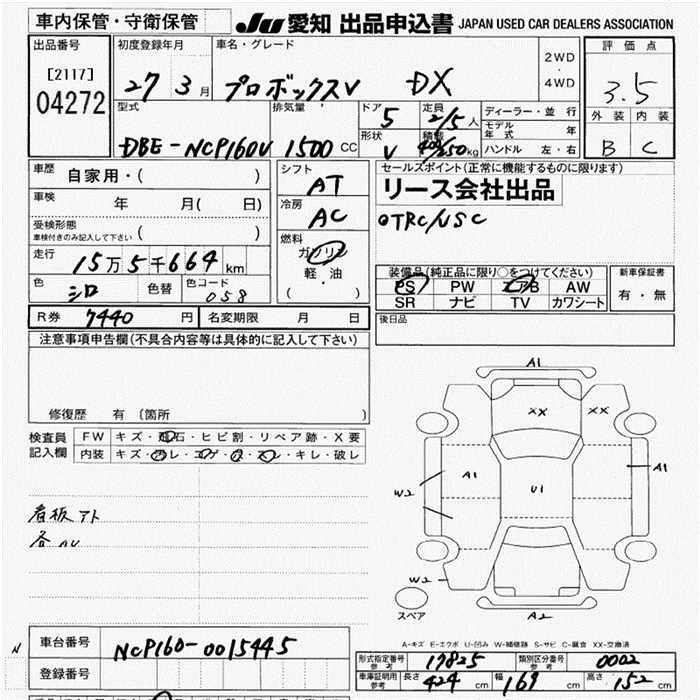 車内保管・守衛保管 JU 愛知 出品申込書 JAPAN USED CAR DEALERS ASSOCIATION
出品番号 [2117] 04272
初度登録年月 27 3月
車名・グレード プロボックスV DX
2WD・4WD
評価点 3.5
外装 内装
B C
型式 DBE-NCP160V
排気量 1500 CC
ドア 5
形状 V
定員 2/5 人
積載 400/250 kg
ディーラー・並行
モデル年式 年
ハンドル 左・右
車歴 自家用・( )
車検 年 月( 日)
受検形態 車検付きのみ記入して下さい ( )
走行 15万5千664 km
色 シロ 色替 色コード 058
シフト AT
冷房 AC
燃料 ガソリン 軽・油 ( )
セールスポイント(正常に機能するものに限ります)
リース会社出品
○TRC/VSC
装備品(純正品に限り○をつけてください)
PS PW エアB AW
SR ナビ TV カワシート
新車保証書 有・無
後日品
R券 7440 円 名変期限 月 日
注意事項申告欄(不具合内容等は具体的に記入して下さい)
修復歴 有 (箇所 )
検査員記入欄
FW キズ・飛石・ヒビ割・リペア跡・X要
内装 キズ・汚レ・コゲ・穴・スレ・キレ・破レ
看板アト
各AU
A1
XX XX
A1 A1
W2 U1
W2
スペア A2
A-キズ E-エクボ U-凹み W-補修跡 S-サビ C-腐食 XX-交換済
車台番号 NCP160-0015445
登録番号
N
形式指定番号 参考 17825
類別区分番号 参考 0002
車庫証明用 参考 長さ 424 cm 幅 169 cm 高さ 152 cm